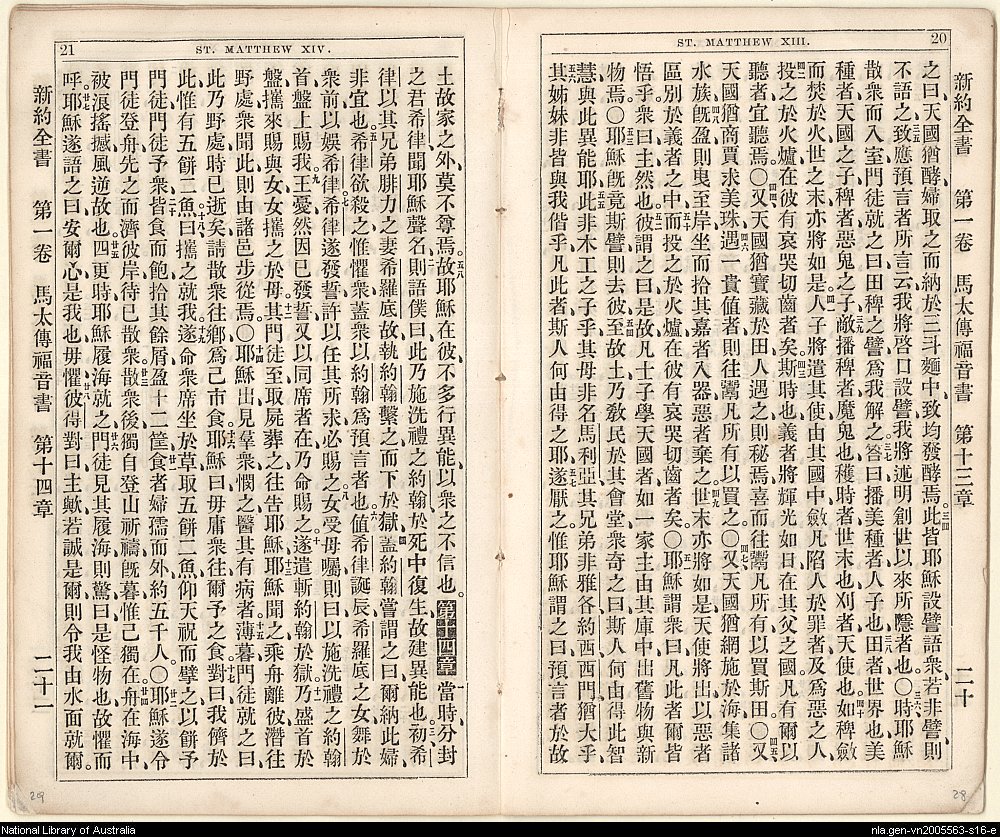 20
ST. MATTHEW XIII.
新約全書 第一卷 馬太傳福音書 第十三章 二十
之曰、天國猶酵、婦取之而納於三斗麵中、致均發酵焉。此皆耶穌設譬語衆、若非譬、則
不語之、致應預言者所言云、我將啓口設譬、我將述明創世以來所隱者也。〇時耶穌
散衆而入室、門徒就之曰、田稗之譬、爲我解之。答曰、播美種者、人子也、田者、世界也、美
種者、天國之子、稗者、惡鬼之子、敵播稗者、魔鬼也、穫時者、世末也、刈者、天使也、如稗斂
而焚於火、世之末亦將如是、人子將遣其使、由其國中斂凡陷人於罪者、及爲惡之人、
投之於火爐、在彼有哀哭切齒者矣。斯時也、義者將輝光如日、在其父之國、凡有耳以
聽者、宜聽焉。〇又天國猶寶藏於田、人遇之則秘焉、喜而往鬻凡所有以買斯田。〇又
天國猶商賈求美珠、遇一貴值者、則往鬻凡所有以買之。〇又天國猶網施於海、集諸
水族、旣盈則曳至岸、坐而拾其嘉者入器、惡者棄之、世末亦將如是、天使將出、以惡者
區別於義者之中、而投之於火爐、在彼有哀哭切齒者矣。〇耶穌謂衆曰、凡此者、爾皆
悟乎、衆曰、主、然也。彼謂之曰、是故凡士子學天國者、如一家主、由其庫中出舊物與新
物焉。〇耶穌旣竟斯譬、則去彼、至故土、乃敎民於其會堂、衆奇之曰、斯人何由得此智
慧、與此異能耶、此非木工之子乎、其母非名馬利亞、其兄弟非雅各約西西門猶大乎、
其姊妹非皆與我偕乎、凡此者、斯人何由得之耶、遂厭之。惟耶穌謂之曰、預言者於故
28
21
ST. MATTHEW XIV.
土故家之外、莫不尊焉。故耶穌在彼、不多行異能、以衆之不信也。第十四章 當時、分封
之君希律聞耶穌聲名、則語僕曰、此乃施洗禮之約翰、於死中復生、故建異能也。初希
律以其兄弟腓力之妻希羅底故、執約翰繫之、而下於獄、蓋約翰嘗謂之曰、爾納此婦、
非宜也。希律欲殺之、惟懼衆、蓋衆以約翰爲預言者也。值希律誕辰、希羅底之女舞於
衆前、以娛希律、希律遂發誓、許以任其所求、必賜之、女受母囑、則曰、以施洗禮之約翰
首、盤上賜我、王憂、然因已發誓、又以同席者在、乃命賜之、遂遣斬約翰於獄、乃盛首於
盤、攜來賜與女、女攜之於母、其門徒至、取屍葬之、往告耶穌、耶穌聞之、乘舟離彼、潛往
野處、衆聞此、則由諸邑步從焉。〇耶穌出、見羣衆、憫之、醫其有病者、薄暮、門徒就之曰、
此乃野處、時已逝矣、請散衆往鄉、爲己市食、耶穌曰、毋庸衆往、爾予之食、對曰、我儕於
此、惟有五餅二魚、曰、攜之就我、遂命衆席坐於草、取五餅二魚、仰天祝而擘之、以餅予
門徒、門徒予衆、皆食而飽、拾其餘屑盈十二筐、食者、婦孺而外、約五千人。〇耶穌遂令
門徒登舟、先之而濟彼岸、待已散衆、散衆後、獨自登山祈禱、旣暮、惟己獨在、舟在海中、
被浪搖撼、風逆故也、四更時、耶穌履海就之、門徒見其履海則驚曰、是怪物也、故懼而
呼、耶穌遂語之曰、安爾心、是我也、毋懼、彼得對曰、主歟、若誠是爾、則令我由水面就爾。
新約全書 第一卷 馬太傳福音書 第十四章 二十一
29
National Library of Australia
nla.gen-vn2005563-s16-e